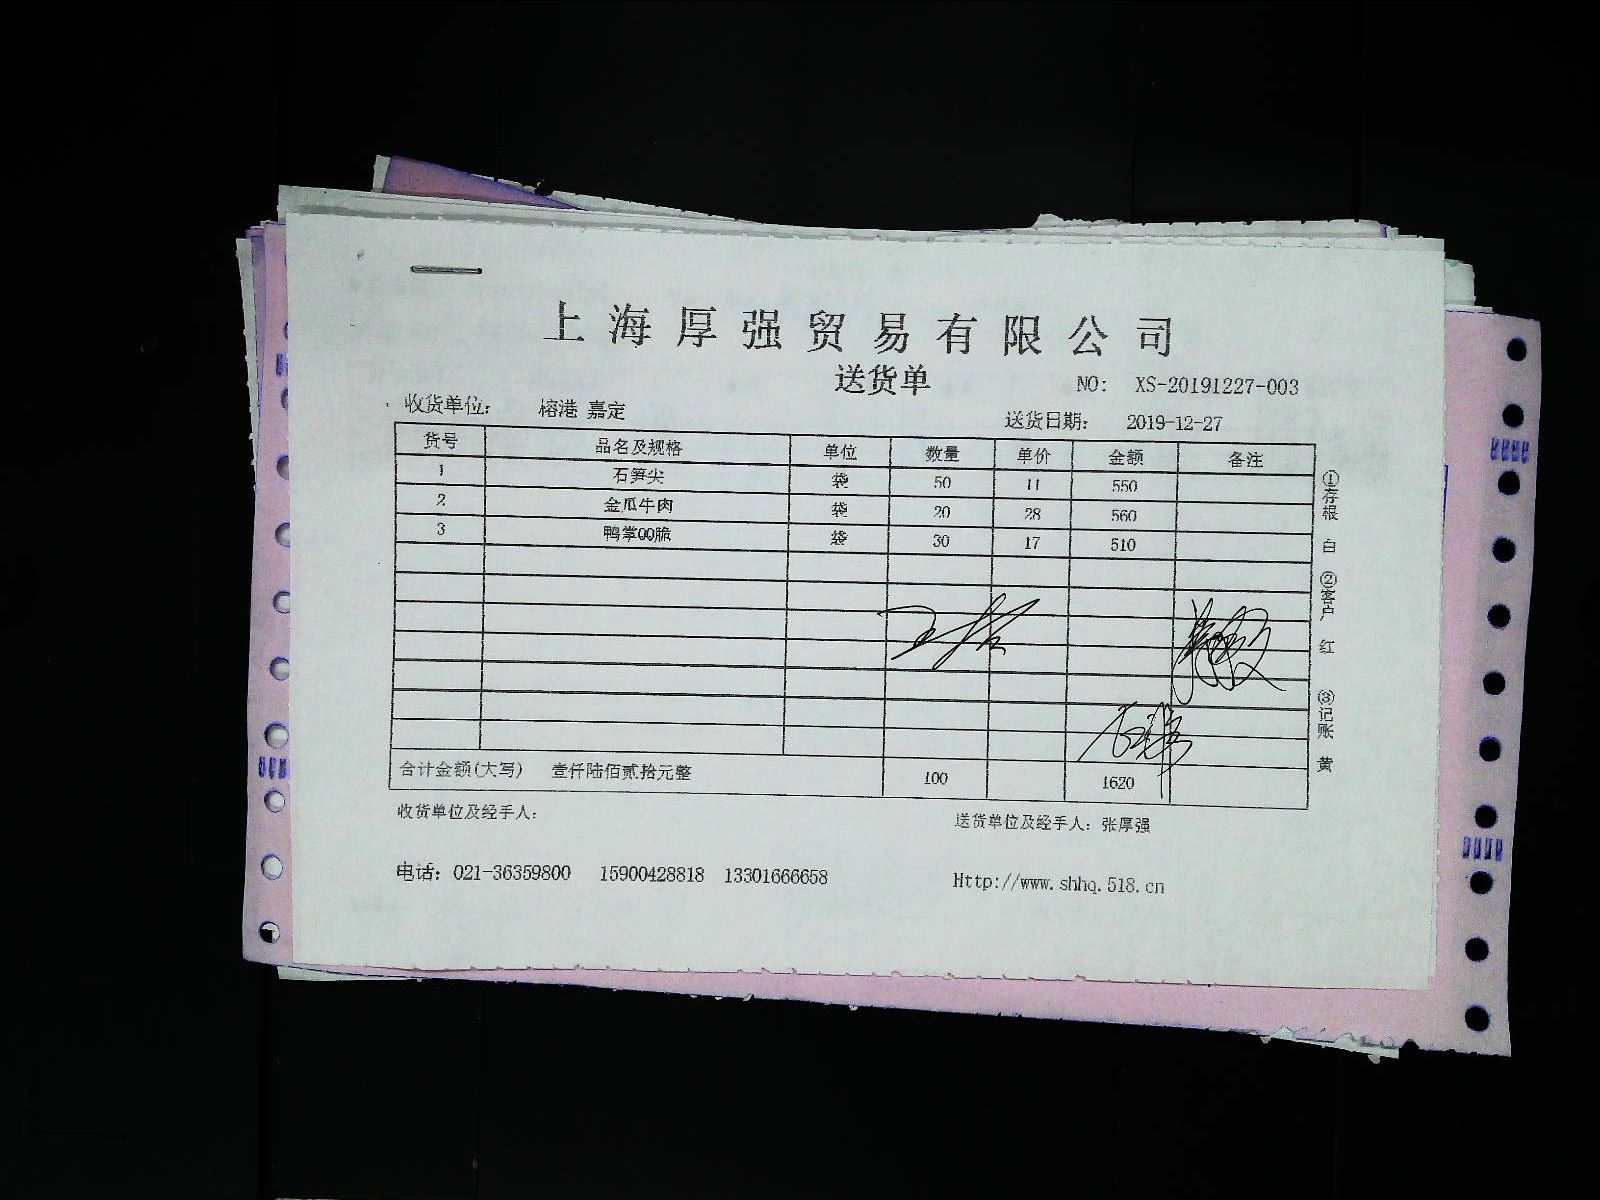 上海厚强贸易有限公司
送货单
NO： XS-20191227-003
收货单位： 榕港 嘉定
送货日期： 2019-12-27
货号 品名及规格 单位 数量 单价 金额 备注
1 石笋尖 袋 50 11 550
2 金瓜牛肉 袋 20 28 560
3 鸭掌QQ脆 袋 30 17 510
合计金额(大写) 壹仟陆佰贰拾元整 100 1620
收货单位及经手人：
送货单位及经手人：张厚强
电话：021-36359800 15900428818 13301666658
Http://www.shhq.518.cn
①存根 白 ②客户 红 ③记账 黄